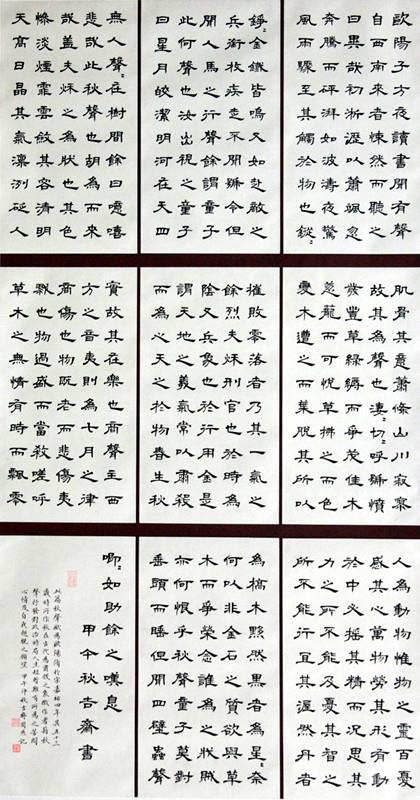 歐陽子方夜讀書聞有聲
自西南來者悚然而聽之
曰異哉初淅瀝以蕭颯忽
奔騰而砰湃如波濤夜驚
風雨驟至其觸於物也鏦〻
錚〻金鐵皆鳴又如赴敵之
兵銜枚疾走不聞號令但
聞人馬之行聲餘謂童子
此何聲也汝出視之童子
曰星月皎潔明河在天四
無人聲〻在樹間餘曰噫嘻
悲哉此秋聲也胡為而來
哉蓋夫秌之為狀也其色
慘淡煙霏雲斂其容清明
天高日晶其氣凜冽砭人
肌骨其意蕭條山川寂寥
故其為聲也淒〻切〻呼號憤
發豐草綠縟而爭茂佳木
蔥蘢而可悅草拂之而色
變木遭之而葉脫其所以
摧敗零落者乃其一氣之
餘烈夫秌刑官也於時為
陰又兵象也於行用金是
謂天地之義氣常以肅殺
而為心天之於物春生秋
實故其在樂也商聲主西
方之音夷則為七月之律
商傷也物既老而悲傷夷
戮也物過盛而當殺嗟呼
草木之無情有時而飄零
人為動物惟物之靈百憂
感其心萬物勞其形有動
於中必搖其精而況思其
力之所不及憂其智之
所不能行宜其渥然丹者
為槁木黟然黑者為星〻奈
何以非金石之質欲與草
木而爭榮念誰為之戕賊
亦何恨乎秋聲童子莫對
垂頭而睡但聞四壁蟲聲
唧〻如助餘之嘆息
甲午秋吉齋書
此篇秋聲賦為歐陽脩行宗嘉祐四年其五十三
歲時所作秋在古代為肅殺之象徵作者藉秋
聲抒發對政治時局人生短暫難有所為之苦悶
心情及自我超脫之願望 甲午仲秋吉齋記